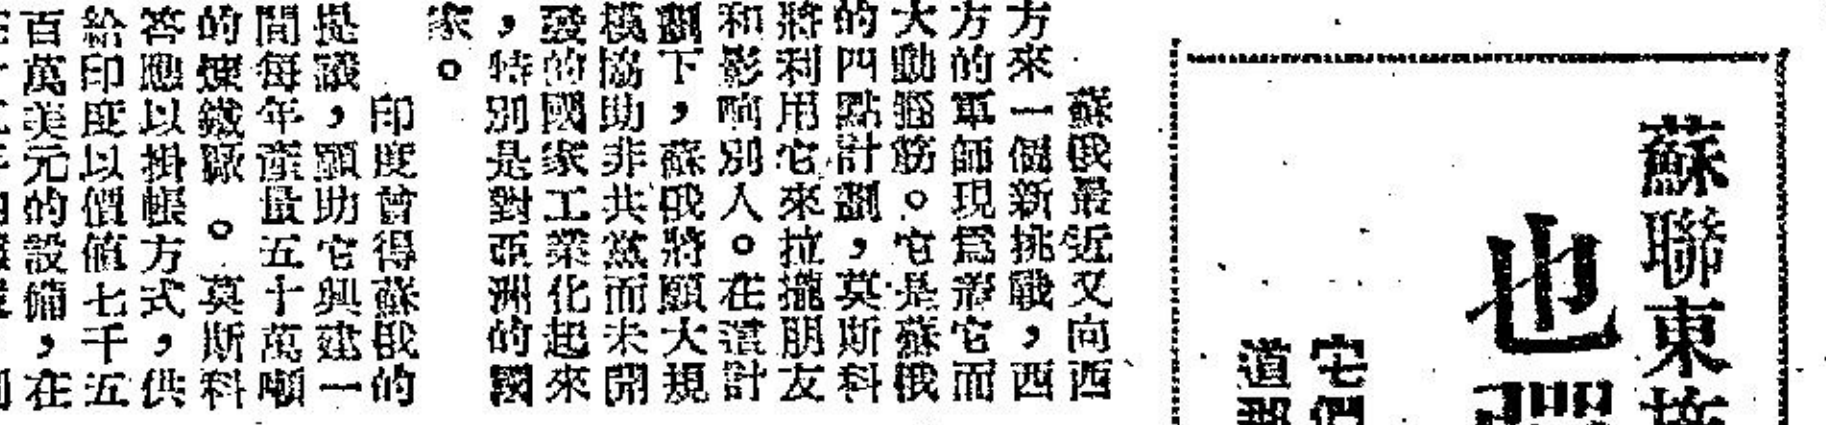 蘇聯東
也
宅們
道
蘇俄最近又向西
方來一個新挑戰，西
方的軍師現爲帮它而
大動腦筋。它是蘇俄
的四點計劃，莫斯科
將利用它來拉攏朋友
和影响別人。在這計
劃下，蘇俄將願大規
模協助非共黨而未開
發的國家工業化起來
，特別是對亞洲的國
家。
印度曾得蘇俄的
提議，願助它興建一
間每年產量五十萬噸
的煉鐵廠。莫斯科
答應以掛帳方式，供
給印度以價值七千五
百萬美元的設備，在